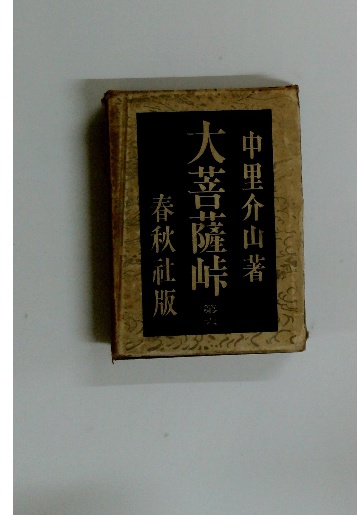 中里介山著
大菩薩峠
春秋社版